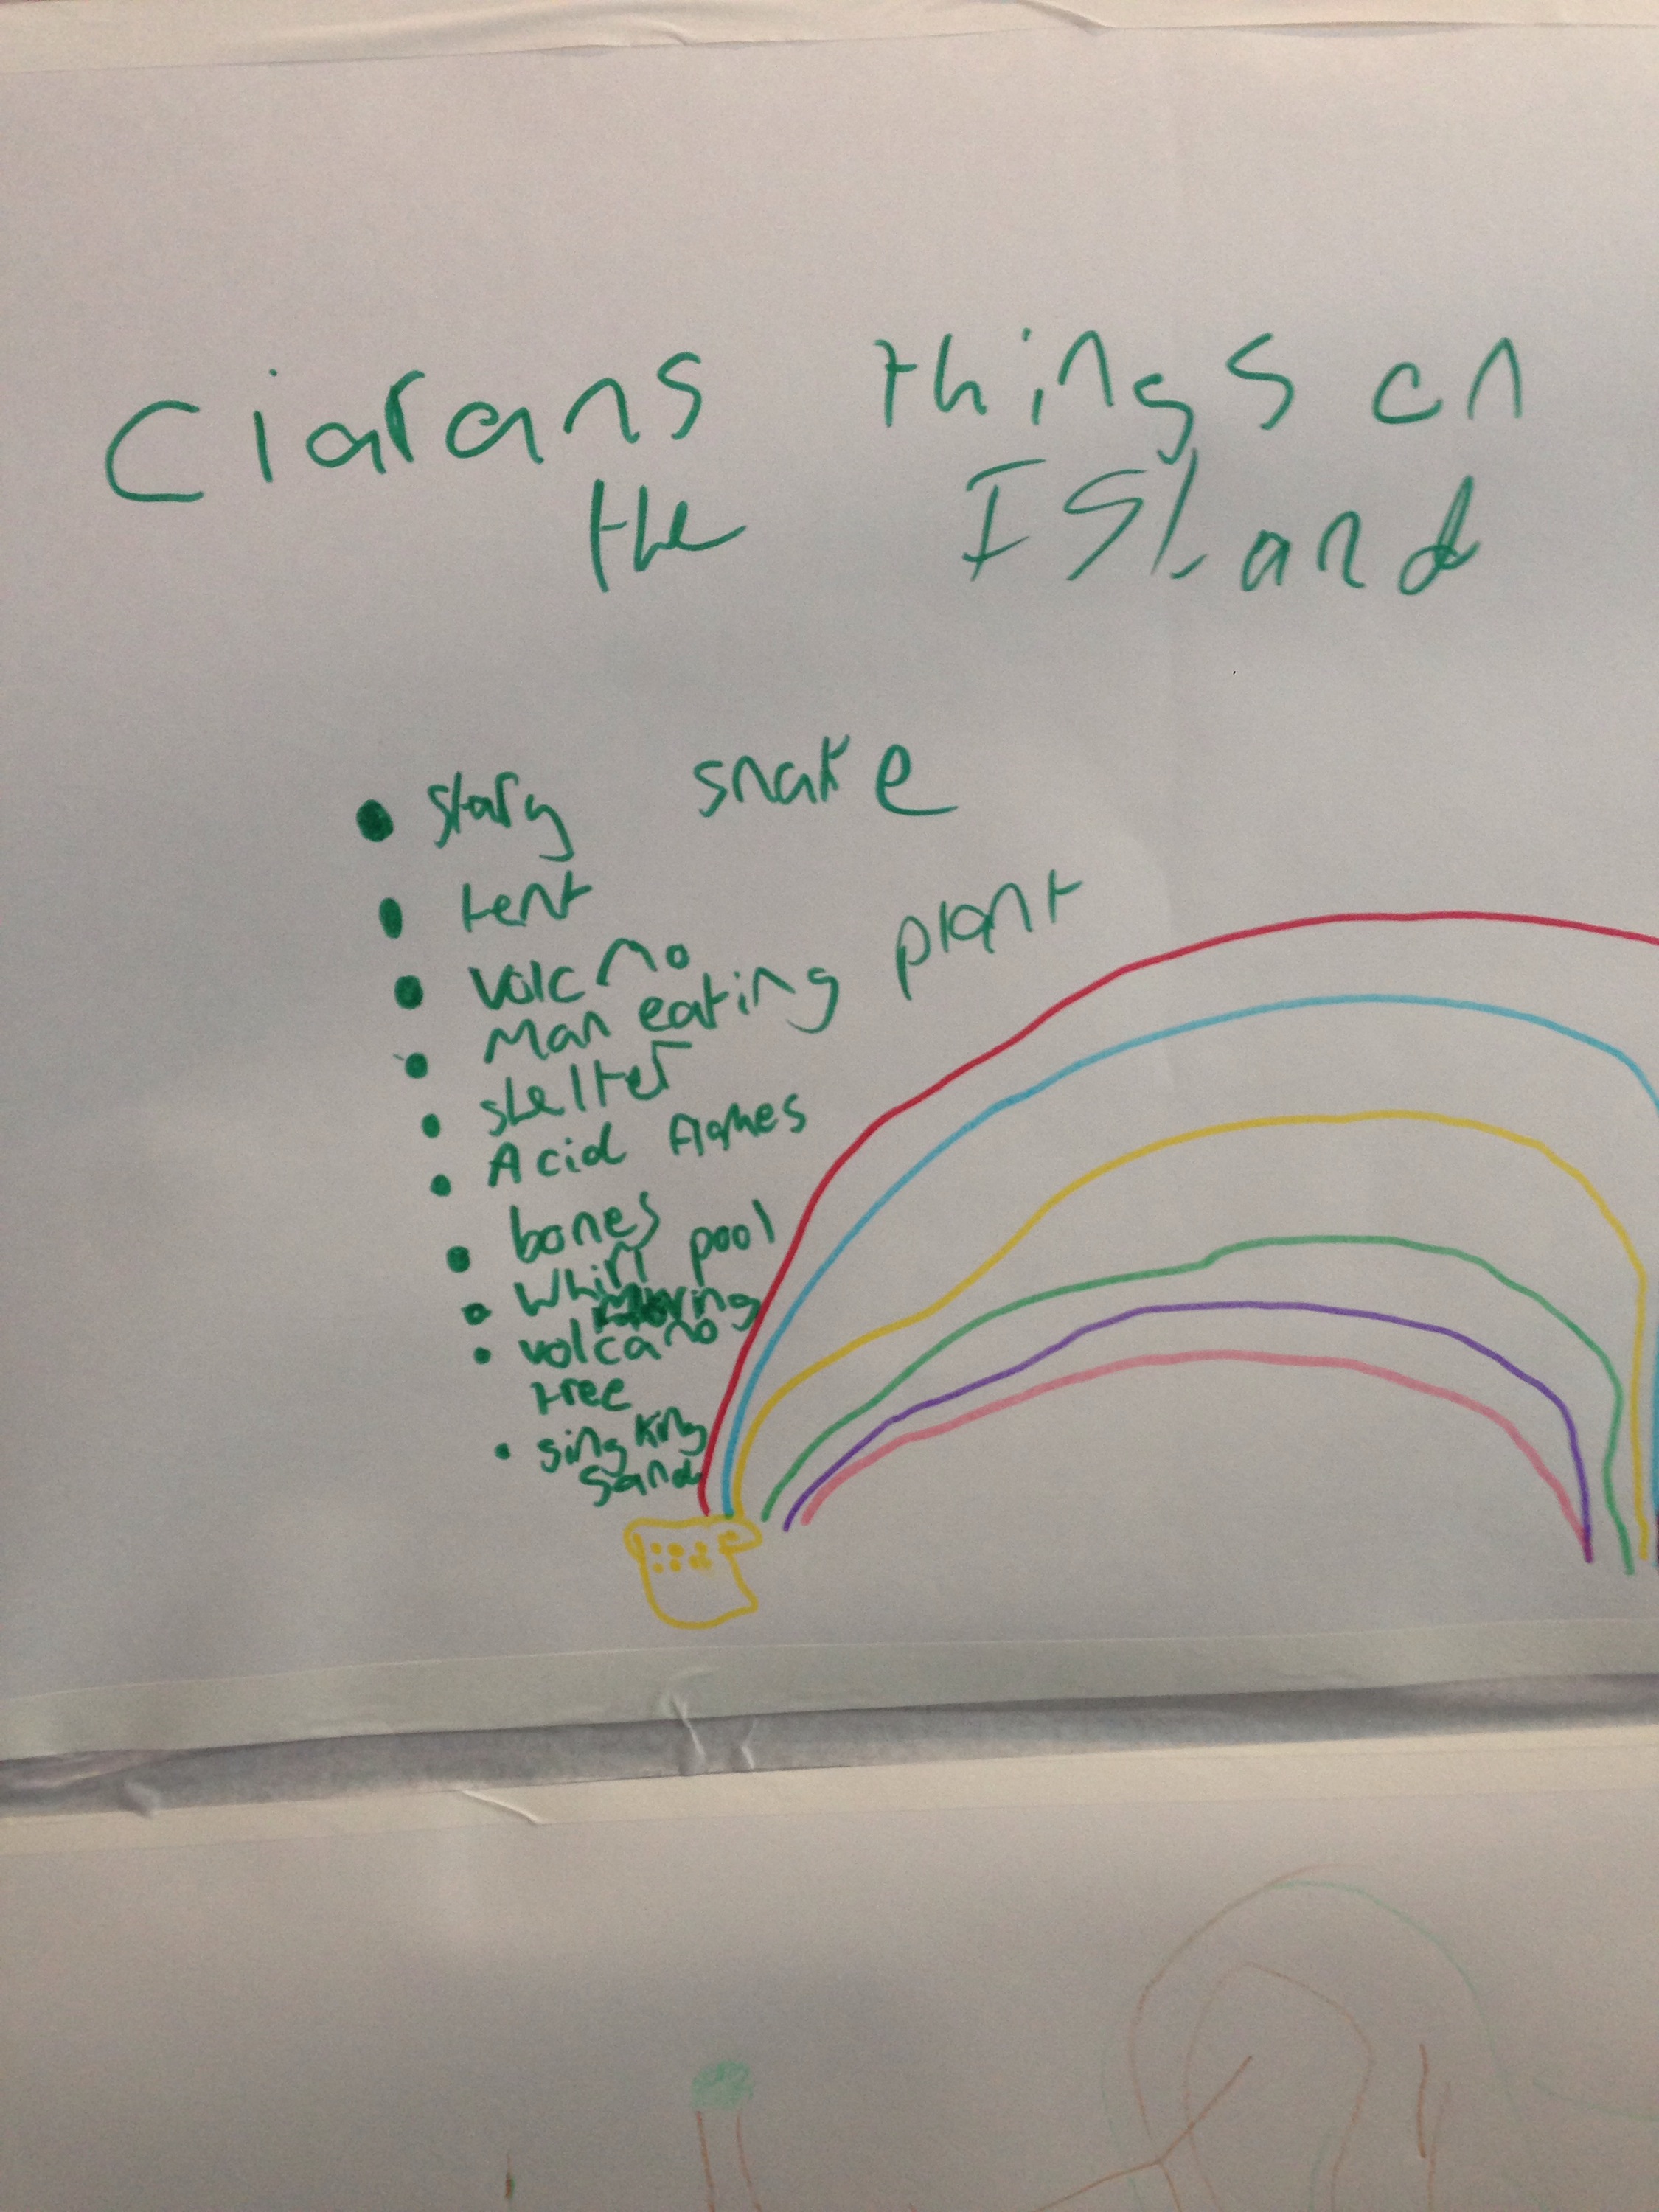 Ciarans things on
the ISLand
• stary snake
• tent
• volcno
• Man eating plant
• shelter
• Acid flames
• bones
• whirl pool
moving
• volcano
tree
• singking
sand